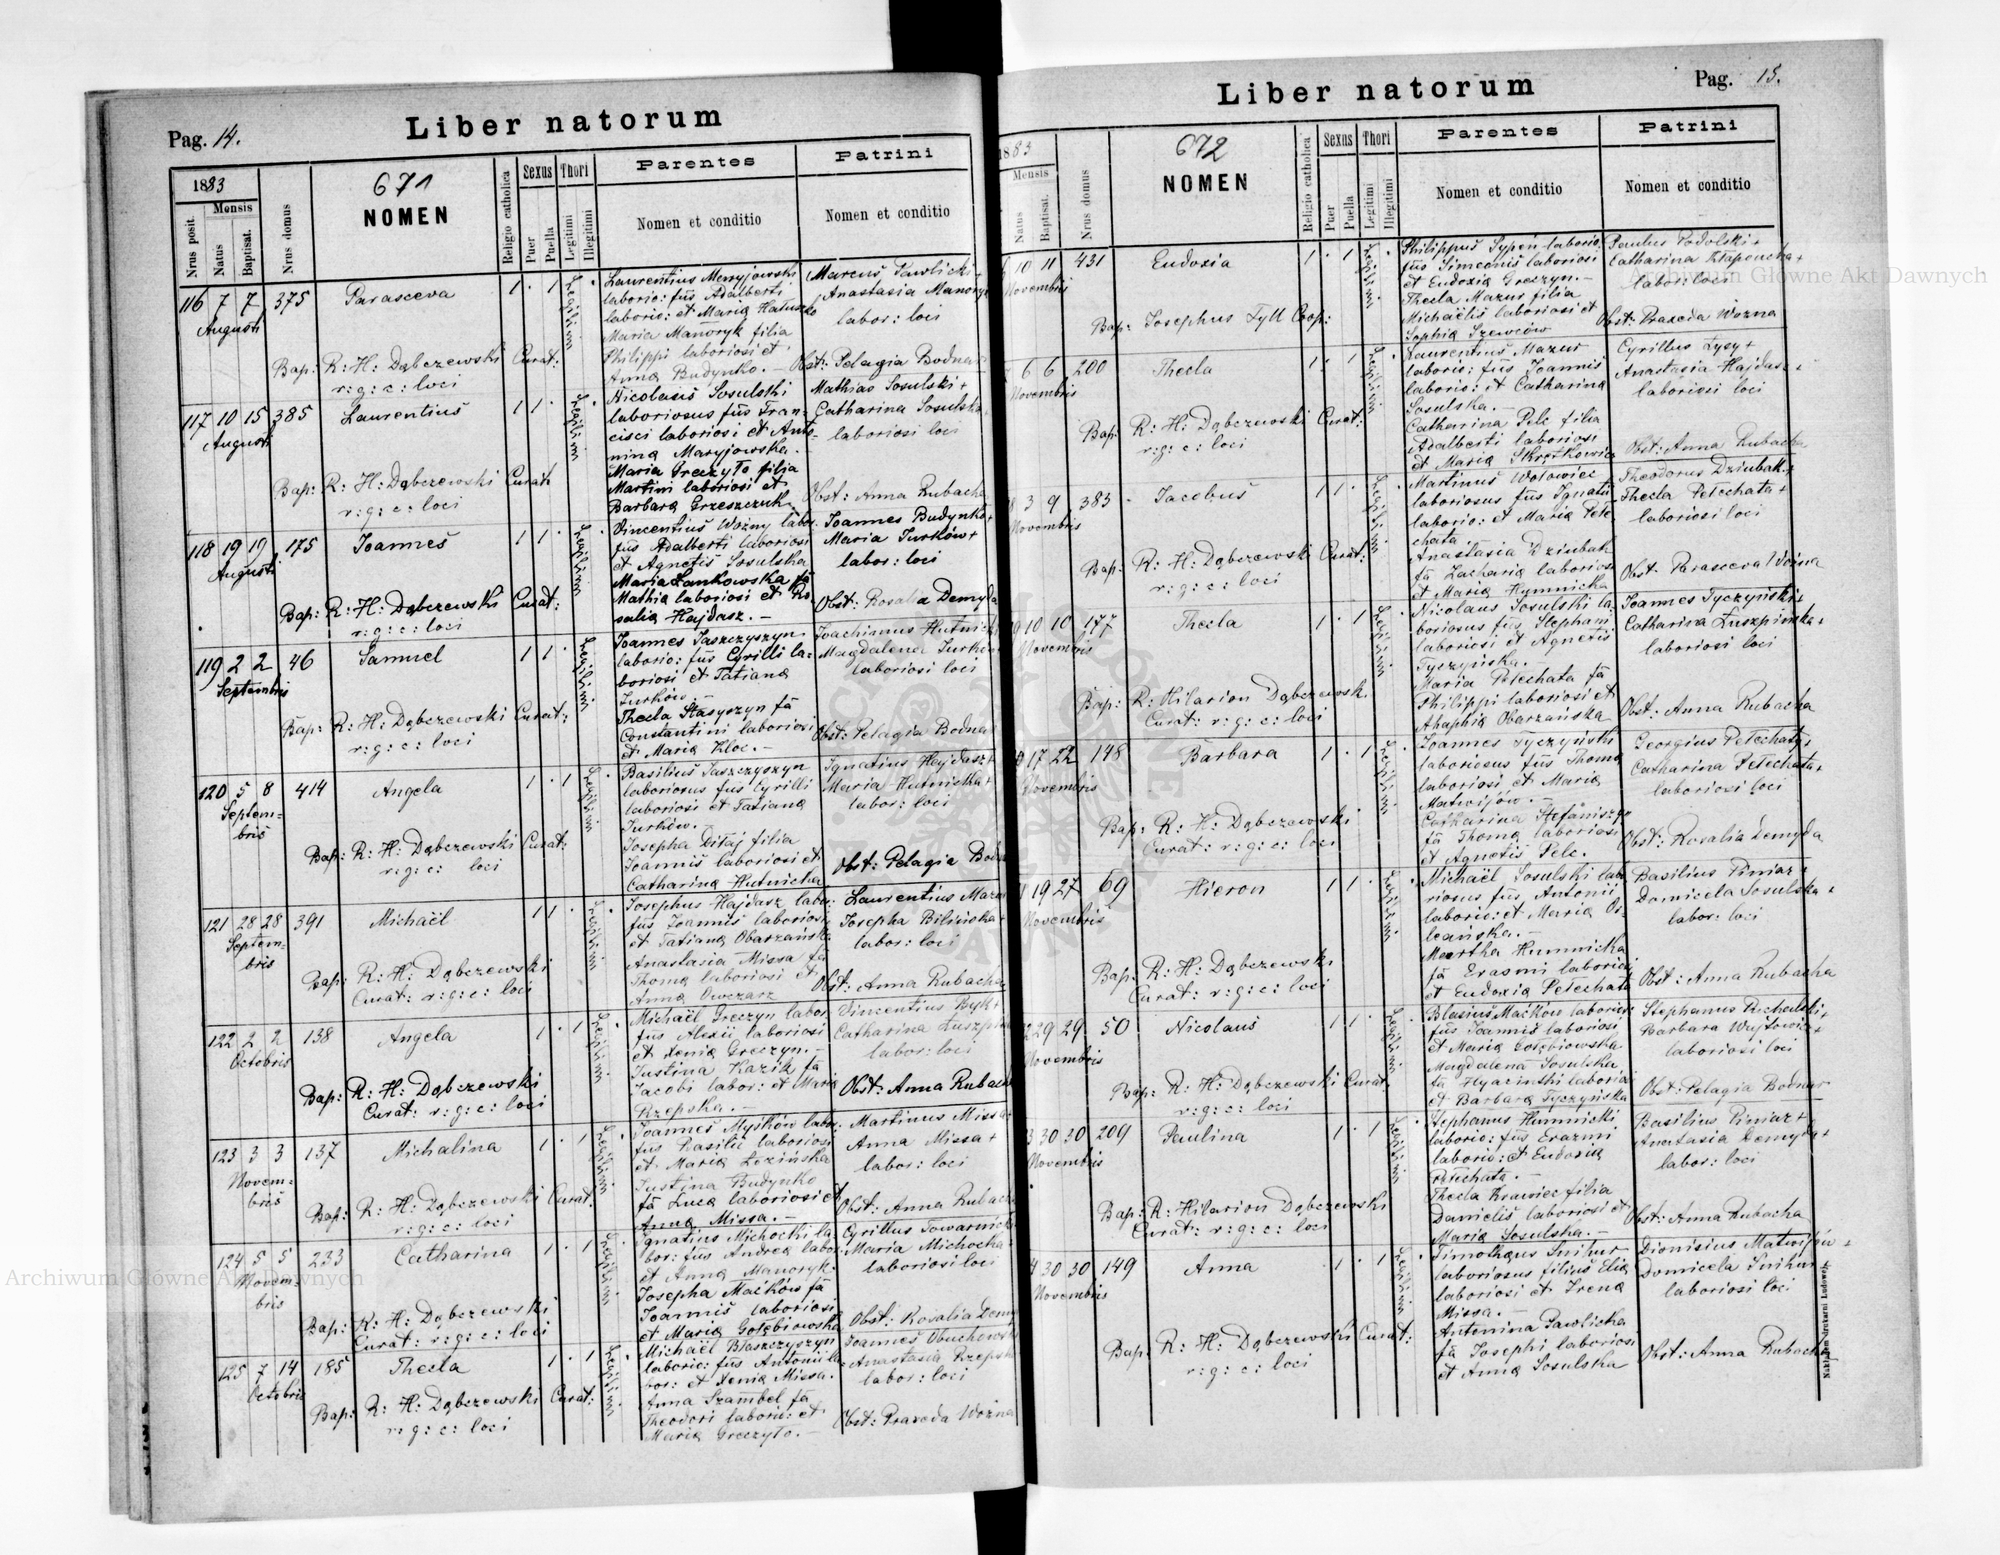 Pag. 14.
Liber natorum
1883
Mensis
Nrus posit.
Natus
Baptisat.
Nrus domus
671
NOMEN
Religio catholica
Sexus
Puer
Puella
Thori
Legitimi
Illegitimi
Parentes
Nomen et conditio
Patrini
Nomen et conditio
116 7 7 375 Parasceva 1 · 1 Legitimi
Augusti
Laurentius Maryjowski
laborio: fus Adalberti
laborio: et Maria Hatuszko
Maria Manoryk filia
Philippi laboriosi et
Anna Budynko. —
Marcus Pawlicki +
Anastasia Manoryk
labor: loci
Obst: Pelagia Bodnar
Bap: R: H: Dąbczewski Curat:
r: g: c: loci
117 10 15 385 Laurentius 1 1 · Legitimi
Augusti
Nicolaus Sosulski
laboriosus fus Fran-
cisci laboriosi et Anto-
nina Maryjowska.
Maria Greczyło filia
Martini laboriosi et
Barbara Grzeszczuk.
Mathias Sosulski +
Catharina Sosulska
laboriosi loci
Obst: Anna Rubacha
Bap: R: H: Dąbczewski Curat
r: g: c: loci
118 19 19 175 Joannes 1 1 · Legitimi
Augusti
Vincentius Woźny labor.
fus Adalberti laboriosi
et Agnetis Sosulska
Maria Lankowska fa
Mathia laboriosi et Ro
salia Hajdasz. —
Joannes Budynko +
Maria Jurków +
labor: loci
Obst: Rosalia Demyda
Bap: R: H: Dąbczewski Curat:
r: g: c: loci
119 2 2 46 Samuel 1 1 · Legitimi
Septembris
Joannes Jaszczyszyn
laborio: fus Cyrilli la-
boriosi et Tatiana
Jurków. —
Thecla Stasyszyn fa
Constantini laboriosi
et Maria Kloc. —
Joachimus Hutnicki
Magdalena Jurków
laboriosi loci
Obst: Pelagia Bodnar
Bap: R: H: Dąbczewski Curat:
r: g: c: loci
120 5 8 414 Angela 1 · 1 Legitimi
Septem-
bris
Basilius Jaszczyszyn
laboriosus fus Cyrilli
laboriosi et Tatiana
Jurków. —
Josepha Ditaj filia
Joannis laboriosi et
Catharina Hutnicka
Ignatius Hajdasz +
Maria Hutnicka +
labor: loci
Obst: Pelagia Bodnar
Bap: R: H: Dąbczewski Curat:
r: g: c: loci
121 28 28 391 Michaël 1 1 · Legitimi
Septem-
bris
Josephus Hajdasz labor.
fus Joannis laboriosi
et Tatiana Obarzańska
Anastasia Missa fa
Thoma laboriosi et
Anna Owczarz
Laurentius Mazur
Josepha Bilińska +
labor: loci
Obst: Anna Rubacha
Bap: R: H: Dąbczewski
Curat: r: g: c: loci
122 2 2 138 Angela 1 · 1 Legitimi
Octobris
Michaël Greczyn labor
fus Alexii laboriosi
et Xenia Greczyn. —
Justina Kazik fa
Jacobi labor: et Maria
Rzepska. —
Vincentius Byk +
Catharina Łuszpińska
labor: loci
Obst: Anna Rubacha
Bap: R: H: Dąbczewski
Curat: r: g: c: loci
123 3 3 137 Michalina 1 · 1 Legitimi
Novem-
bris
Joannes Myśków labor.
fus Basilii laboriosi
et Maria Łozińska
Justina Budynko
fa Luca laboriosi et
Anna Missa. —
Martinus Missa +
Anna Missa +
labor: loci
Obst: Anna Rubacha
Bap: R: H: Dąbczewski Curat:
r: g: c: loci
124 5 5 233 Catharina 1 · 1 Legitimi
Novem-
bris
Ignatius Michocki la-
bor: fus Andrea labor
et Anna Manoryk.
Josepha Maćków fa
Joannis laboriosi
et Maria Gołębiowska
Cyrillus Towarnicki
Maria Michocka
laboriosi loci
Obst: Rosalia Demyda
Bap: R: H: Dąbczewski
Curat: r: g: c: loci
125 7 14 185 Thecla 1 · 1 Legitimi
Octobris
Michaël Błaszczyszyn
laborio: fus Antonii la-
bor: et Xenia Missa.
Anna Szambel fa
Theodori laborio: et
Maria Greczyło. —
Joannes Obuchowski
Anastasia Rzepska
labor: loci
Obst: Praxeda Woźna
Bap: R: H: Dąbczewski Curat:
r: g: c: loci
Liber natorum
Pag. 15.
1883
Mensis
Natus
Baptisat.
Nrus domus
672
NOMEN
Religio catholica
Sexus
Puer
Puella
Thori
Legitimi
Illegitimi
Parentes
Nomen et conditio
Patrini
Nomen et conditio
10 11 431 Eudoxia 1 · 1 Legitimi
Novembris
Philippus Sypeń laborio
fus Simeonis laboriosi
et Eudoxia Greczyn. —
Thecla Mazur filia
Michaëlis laboriosi et
Sophia Szewców
Paulus Podolski +
Catharina Kłapoucha +
labor: loci
Obst: Praxeda Woźna
Bap: Josephus Tyll Coop:
6 6 200 Thecla 1 · 1 Legitimi
Novembris
Laurentius Mazur
laborio: fus Joannis
laborio: et Catharina
Sosulska. —
Catharina Pelc filia
Adalberti laboriosi
et Maria Skrętkowicz
Cyrillus Łysy +
Anastasia Hajdasz +
laboriosi loci
Obst: Anna Rubacha
Bap: R: H: Dąbczewski Curat:
r: g: c: loci
3 9 383 Jacobus 1 1 · Legitimi
Novembris
Martinus Wołowiec
laboriosus fus Ignatii
laborio: et Maria Pełe-
chata
Anastasia Dziubak
fa Zacharia laboriosi
et Maria Hymnicka
Theodorus Dziubak +
Thecla Pełechata +
laboriosi loci
Obst. Parasceva Woźna
Bap: R: H: Dąbczewski Curat:
r: g: c: loci
10 10 177 Thecla 1 · 1 Legitimi
Novembris
Nicolaus Sosulski la-
boriosus fus Stephani
laboriosi et Agnetis
Tyczyńska.
Maria Pełechata fa
Philippi laboriosi et
Ahaphia Obarzańska
Joannes Tyczyński +
Catharina Łuszpińska +
laboriosi loci
Obst: Anna Rubacha
Bap: R: Hilarion Dąbczewski
Curat: r: g: c: loci
17 22 148 Barbara 1 · 1 Legitimi
Novembris
Joannes Tyczyński
laboriosus fus Thoma
laboriosi et Maria
Matwijów. —
Catharina Stefaniszyn
fa Thoma laboriosi
et Agnetis Pelc.
Georgius Pełechaty +
Catharina Pełechata +
laboriosi loci
Obst: Rosalia Demyda
Bap: R: H: Dąbczewski
Curat: r: g: c: loci
19 27 69 Hieron 1 1 · Legitimi
Novembris
Michaël Sosulski labo
riosus fus Antonii
laborio: et Maria Os-
leańska. —
Martha Humnicka
fa Erasmi laboriosi
et Eudoxia Pełechata
Basilius Piniaz +
Domicela Sosulska +
labor: loci
Obst: Anna Rubacha
Bap: R: H: Dąbczewski
Curat: r: g: c: loci
29 29 50 Nicolaus 1 1 · Legitimi
Novembris
Blasius Maćków laborios
fus Joannis laboriosi
et Maria Gołębiowska
Magdalena Sosulska
fa Hyacinthi laboriosi
et Barbara Tyczyńska
Stephanus Puchalski +
Barbara Wojtowicz +
laboriosi loci
Obst: Pelagia Bodnar
Bap: R: H: Dąbczewski Curat.
r: g: c: loci
30 30 209 Paulina 1 · 1 Legitimi
Novembris
Stephanus Humnicki
laborio: fus Erazmi
laborio: et Eudoxia
Pełechata. —
Thecla Krawiec filia
Danielis laboriosi et
Maria Sosulska. —
Basilius Piniaz +
Anastasia Demyda +
labor: loci
Obst: Anna Rubacha
Bap: R: Hilarion Dąbczewski
Curat: r: g: c: loci
30 30 149 Anna 1 · 1 Legitimi
Novembris
Timothaus Snihur
laboriosus filius Elia
laboriosi et Irena
Missa. —
Antonina Pawlicka
fa Josephi laboriosi
et Anna Sosulska
Dionisius Matwijów +
Domicela Snihur
laboriosi loci
Obst: Anna Rubacha
Bap: R: H: Dąbczewski Curat:
r: g: c: loci
Nakładem drukarni Ludowej.
Archiwum Główne Akt Dawnych
Archiwum Główne Akt Dawnych